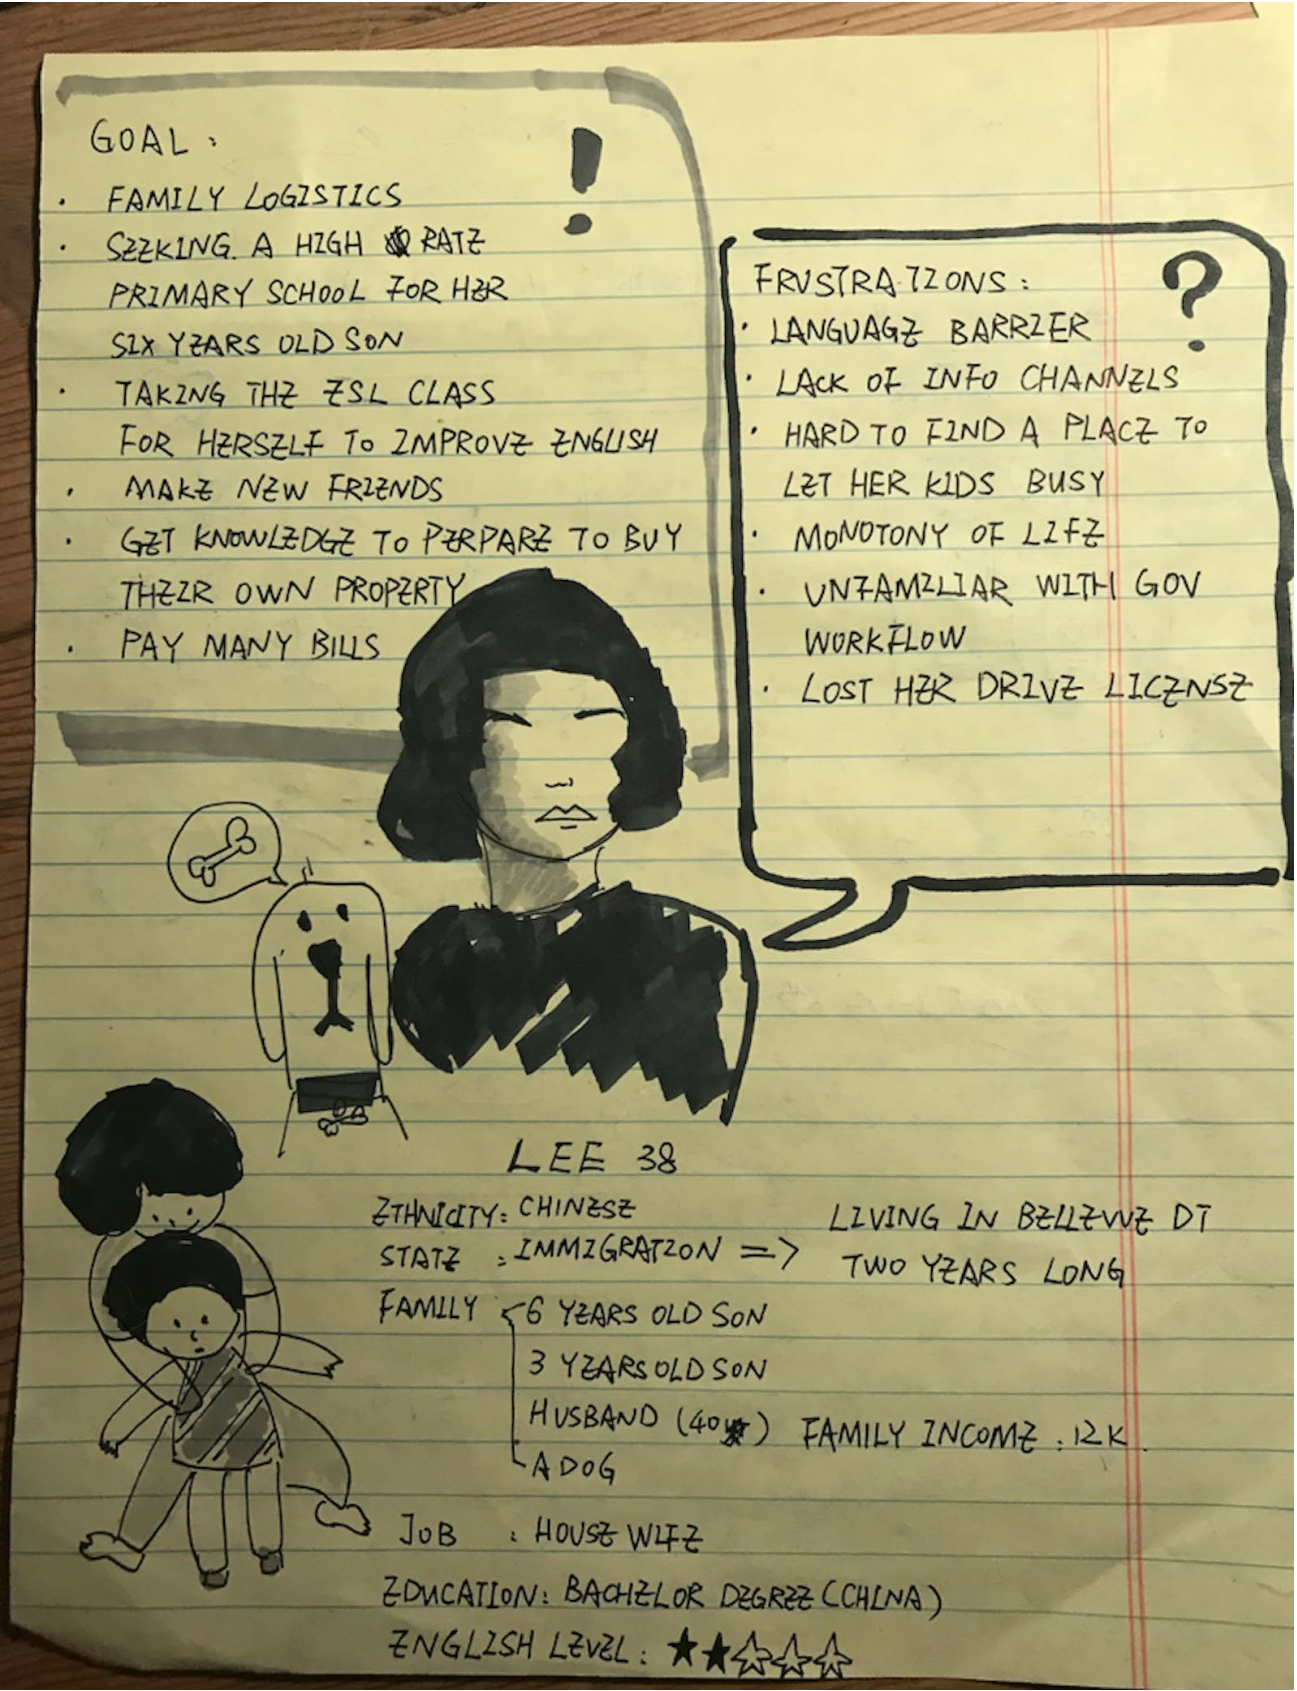 GOAL :
· FAMILY LOGISTICS
· SEEKING A HIGH RATE
PRIMARY SCHOOL FOR HER
SIX YEARS OLD SON
· TAKING THE ESL CLASS
FOR HERSELF TO IMPROVE ENGLISH
· MAKE NEW FRIENDS
· GET KNOWLEDGE TO PERPARE TO BUY
THEIR OWN PROPERTY
· PAY MANY BILLS
!
FRUSTRATIONS :
?
· LANGUAGE BARRIER
· LACK OF INFO CHANNELS
· HARD TO FIND A PLACE TO
LET HER KIDS BUSY
· MONOTONY OF LIFE
· UNFAMILIAR WITH GOV
WORKFLOW
· LOST HER DRIVE LICENSE
LEE 38
ETHNICITY: CHINESE
STATE : IMMIGRATION => LIVING IN BELLEVUE DT
TWO YEARS LONG
FAMILY 6 YEARS OLD SON
3 YEARS OLD SON
HUSBAND (40) FAMILY INCOME : 12K.
A DOG
JOB : HOUSE WIFE
EDUCATION: BACHELOR DEGREE (CHINA)
ENGLISH LEVEL: ★★☆☆☆